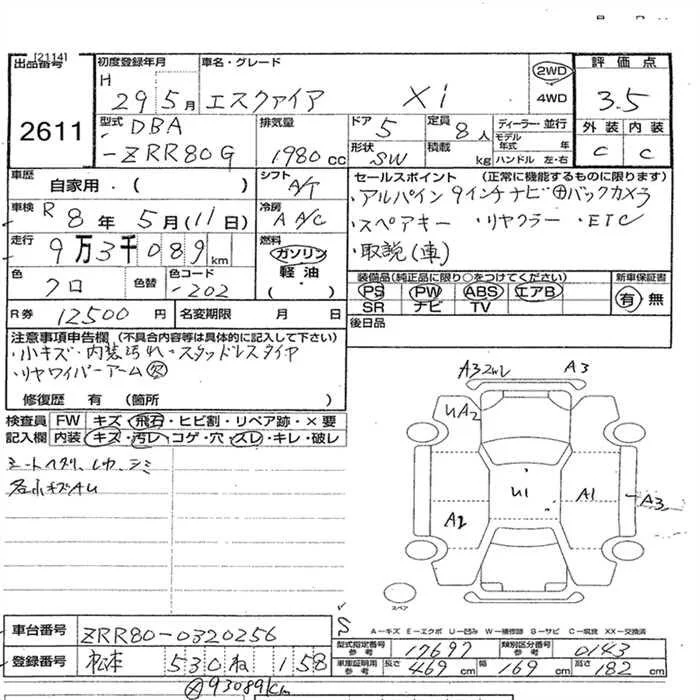 [2114]
出品番号 初度登録年月 車名・グレード 評価点
2611
H 29 5月 エスクァイア Xi 2WD 4WD 3.5
外装 内装
C C
型式 DBA -ZRR80G
排気量 1980 cc
ドア 5 定員 8人
形状 SW 積載 kg
ディーラー・並行
モデル年式 年
ハンドル 左・右
車歴 自家用・( )
シフト A/T
セールスポイント (正常に機能するものに限ります)
・アルパイン 9インチナビ ⊕バックカメラ
・スペアキー ・リヤクラー ・ETC
・取説(車)
車検 R 8年 5月(11日)
冷房 A A/C
走行 9万3千089km
燃料 ガソリン 軽油 ( )
色 クロ 色替 色コード -202
装備品(純正品に限り○をつけてください) 新車保証書
PS PW ABS エアB 有 無
SR ナビ TV
R券 12500円 名変期限 月 日
後日品
注意事項申告欄 (不具合内容等は具体的に記入して下さい)
・小キズ・内装汚れ・スタッドレスタイヤ
・リヤワイパーアーム欠
修復歴 有 (箇所 )
検査員記入欄
FW キズ・飛石・ヒビ割・リペア跡・×要
内装 キズ・汚レ・コゲ・穴・スレ・キレ・破レ
各小キズAU
A3 A3
UA2
U1 A1 A3
A2
スペア
S
A-キズ E-エクボ U-凹み W-補修跡 S-サビ C-腐食 XX-交換済
車台番号 ZRR80-0320256
型式指定番号参考 17697 類別区分番号参考 0143
登録番号 松本 530 ね 158
車庫証明用参考 長さ 469cm 幅 169cm 高さ 182cm
93089km